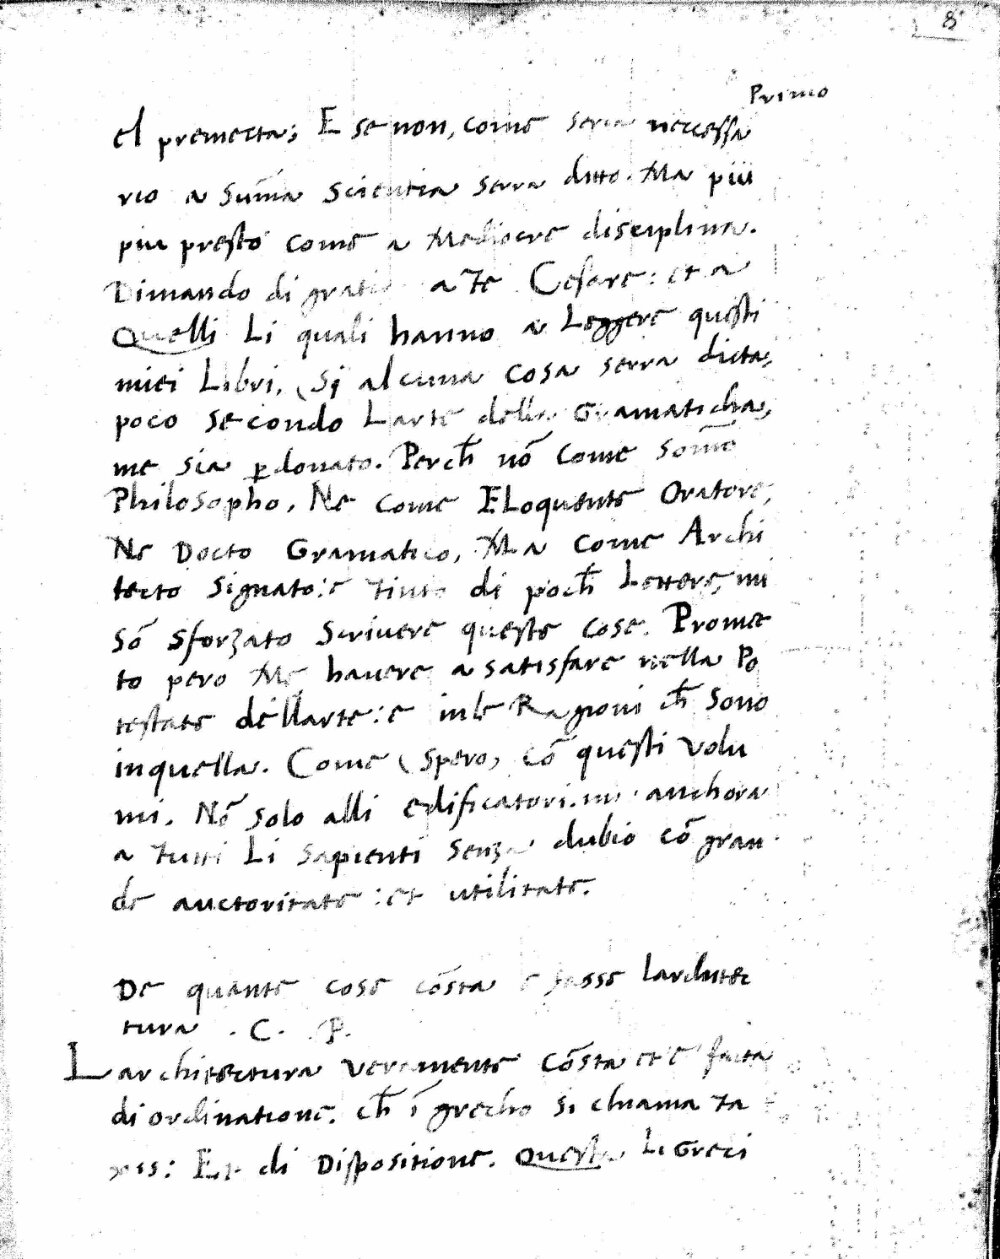 8
Primo
el premecta; E se non, come seria neccessa
rio a Sum̄a Scientia serra ditto. Ma piu
piu presto come a Mediocre disciplina.
Dimando di gratia a Te Cesare: et a
Quelli Li quali hanno a Leggere questi
miei Libri, Si alcuna cosa serra dicta,
poco secondo Larte della Gramaticha,
me sia ꝑdonato. Perch̄ nō come Som̄o
Philosopho, Ne come Eloquente Oratore,
Ne Docto Gramatico, Ma come Archi
tecto Signato: e tinto di poch̄ Lettere, mi
sō sforzato Scrivere queste cose. Promec
to pero Me havere a satisfare nella Po
testate dellarte: e in le Ragioni ch̄ Sono
inquella. Come (spero, cō questi volu
mi. Nō solo alli edificatori. anchora
a Tutti Li Sapienti Senza dubio cō gran
de auctoritate: et utilitate.
De quante cose cōsta e fasse Larchitec
tura . C. P.
Larchitectura veramente cōsta et e facta
di ordinatione. Ch̄ ī grecho si chiama Ta
xis: Et di Dispositione. Questa Li Greci